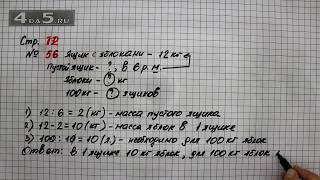 4da5.ru
Стр. 12
№ 56 Ящик с яблоками - 12кг
Пустой ящик - ?, в 6 р. м
яблоки - ? кг
100кг - ? ящиков
1) 12 : 6 = 2 (кг) - масса пустого ящика
2) 12 - 2 = 10 (кг) - масса яблок в 1 ящике
3) 100 : 10 = 10 (я.) - необходимо для 100 кг яблок
Ответ: в 1 ящике 10 кг яблок, для 100 кг яблок